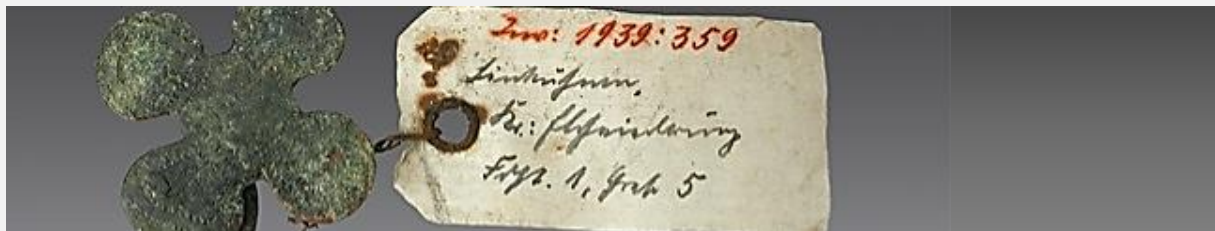 Inv: 1939:359
Linkuhnen,
Kr.: Elchniederung
Fdpl. 1, Grab 5